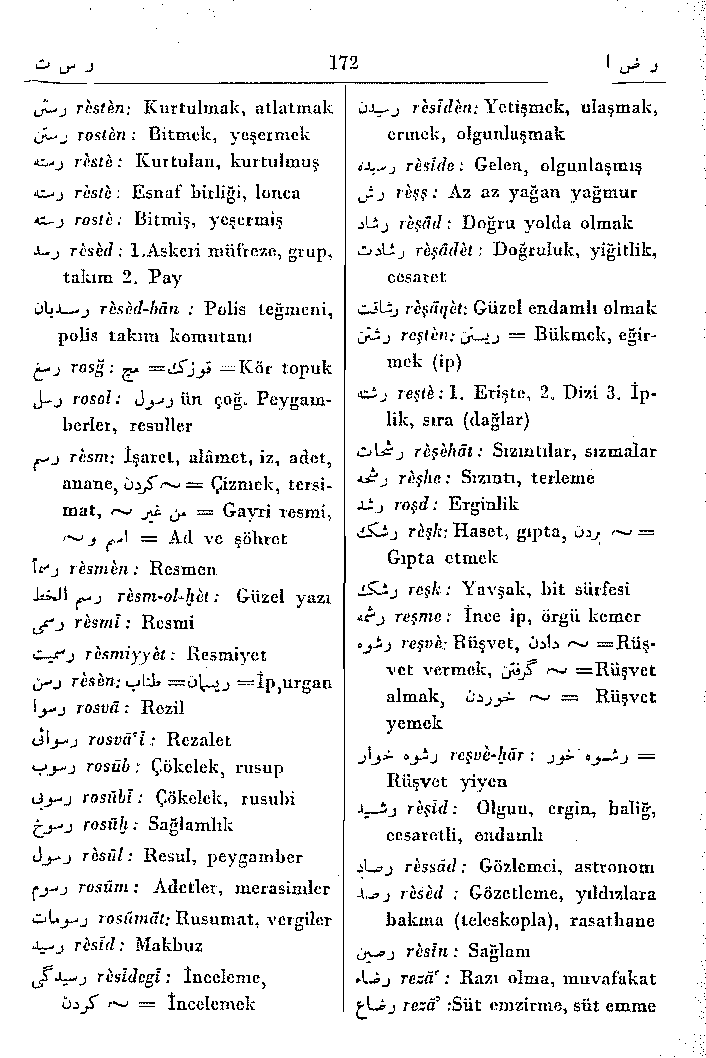 ر س ت 172 ر ض ا
رستن rèstèn: Kurtulmak, atlatmak
رستن rostèn : Bitmek, yeşermek
رسته rèstè : Kurtulan, kurtulmuş
رسته rèstè : Esnaf birliği, lonca
رسته rostè : Bitmiş, yeşermiş
رسد rèsèd : 1.Askeri müfreze, grup,
takım 2. Pay
رسدبان rèsèd-bān : Polis teğmeni,
polis takım komutanı
رسغ rosğ : مچ = قوزك = Kör topuk
رسل rosol : رسول ün çoğ. Peygam-
berler, resuller
رسم rèsm: İşaret, alâmet, iz, adet,
anane, ~ کردن = Çizmek, tersi-
mat, ~ من غیر = Gayri resmi,
~ اسم و = Ad ve şöhret
رسماً rèsmèn : Resmen
رسم الخط rèsm-ol-ḫèt : Güzel yazı
رسمی rèsmī : Resmi
رسمیت rèsmiyyèt : Resmiyet
رسن rèsèn: طناب = ریسمان = İp,urgan
رسوا rosvā : Rezil
رسوائی rosvā'ī : Rezalet
رسوب rosūb : Çökelek, rusup
رسوبی rosūbī : Çökelek, rusubi
رسوخ rosūḫ : Sağlamlık
رسول rèsūl : Resul, peygamber
رسوم rosūm : Adetler, merasimler
رسومات rosūmāt: Rusumat, vergiler
رسید rèsīd : Makbuz
رسیدگی rèsīdegī : İnceleme,
~ کردن = İncelemek
رسیدن rèsīdèn: Yetişmek, ulaşmak,
ermek, olgunlaşmak
رسیده rèsīde : Gelen, olgunlaşmış
رش rèşş : Az az yağan yağmur
رشاد rèşād : Doğru yolda olmak
رشادت rèşādèt : Doğruluk, yiğitlik,
cesaret
رشاقت rèşāqèt: Güzel endamlı olmak
رشتن reştèn: ریستن = Bükmek, eğir-
mek (ip)
رشته reştè : 1. Erişte, 2. Dizi 3. İp-
lik, sıra (dağlar)
رشحات rèşèhāt : Sızıntılar, sızmalar
رشحه rèşhe : Sızıntı, terleme
رشد roşd : Erginlik
رشك rèşk: Haset, gıpta, ~ بردن =
Gıpta etmek
رشك reşk : Yavşak, bit sürfesi
رشمه reşme : İnce ip, örgü kemer
رشوه reşvè: Rüşvet, ~ دادن =Rüş-
vet vermek, ~ گرفتن =Rüşvet
almak, ~ خوردن = Rüşvet
yemek
رشوه خوار reşvè-ḫār : رشوه خور =
Rüşvet yiyen
رشید rèşīd : Olgun, ergin, baliğ,
cesaretli, endamlı
رصاد rèssād : Gözlemci, astronom
رصد rèsèd : Gözetleme, yıldızlara
bakma (teleskopla), rasathane
رصین rèsīn : Sağlam
رضاء rezā' : Razı olma, muvafakat
رضاع rezā' :Süt emzirme, süt emme